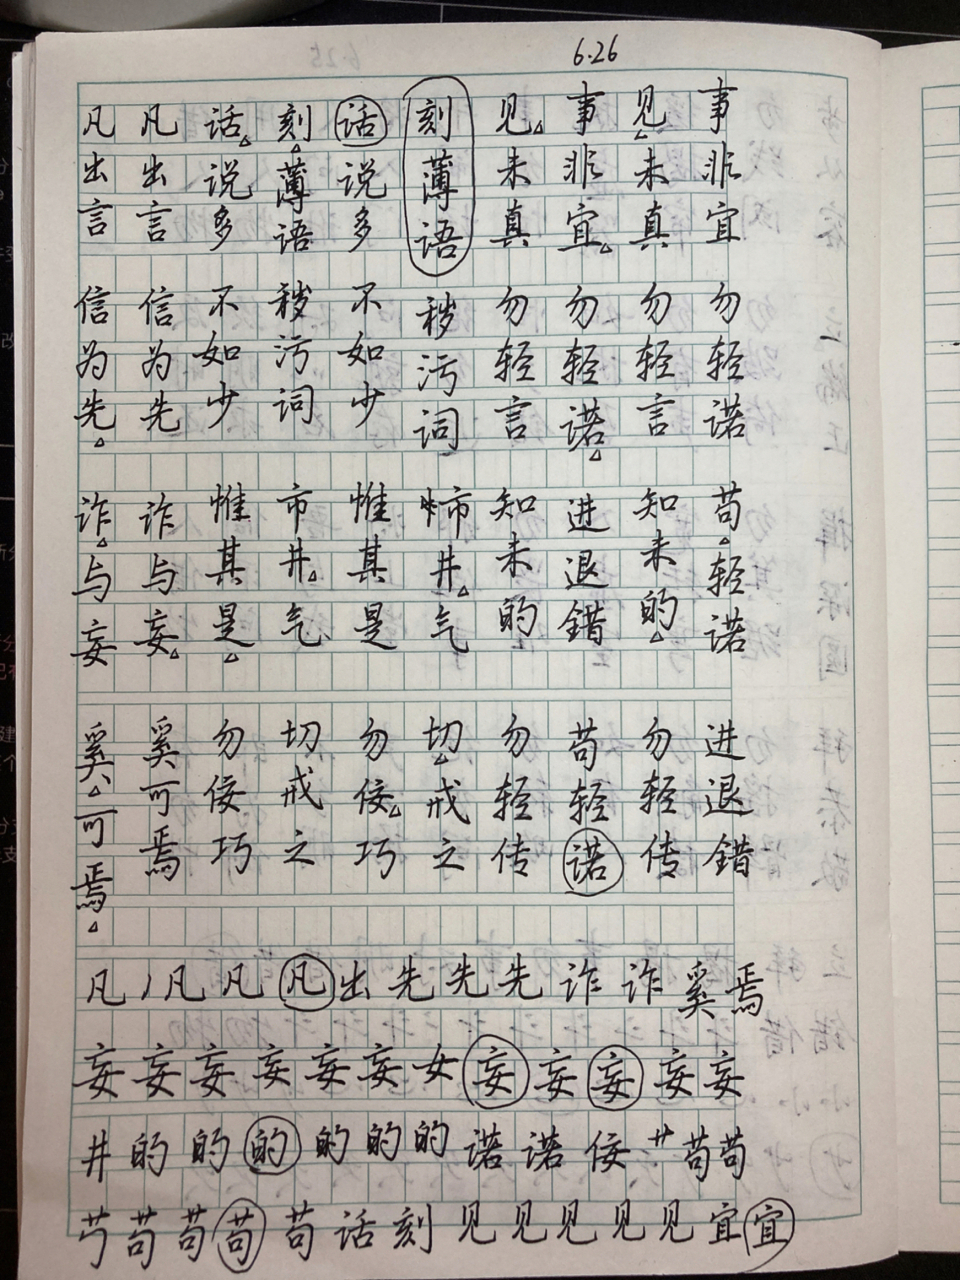 6.26
凡出言信为先诈与妄奚可焉
凡出言信为先诈与妄奚可焉
话说多不如少惟其是勿佞巧
刻薄语秽污词市井气切戒之
话说多不如少惟其是勿佞巧
刻薄语秽污词市井气切戒之
见未真勿轻言知未的勿轻传
事非宜勿轻诺进退错苟轻诺
见未真勿轻言知未的勿轻传
事非宜勿轻诺苟轻诺进退错
凡丿凡凡凡出先先先诈诈奚焉
妄妄妄妄妄妄女妄妄妄妄妄
井的的的的的的诺诺佞艹苟苟
芍苟苟苟苟话刻见见见见见宜宜